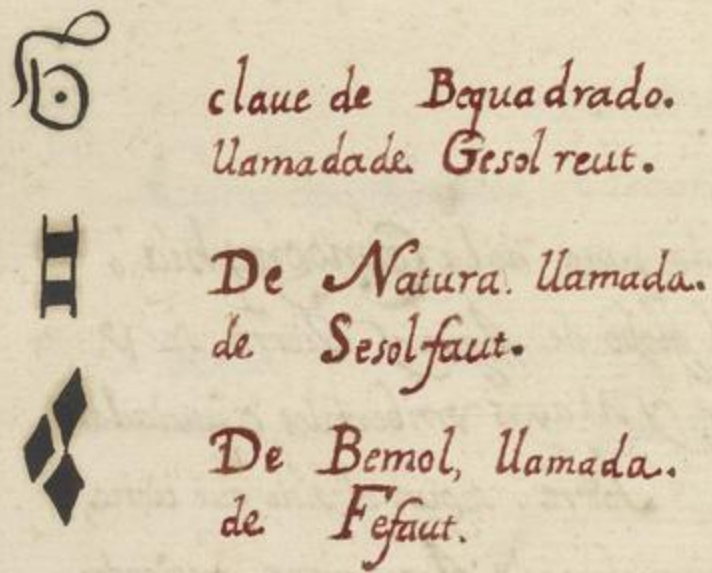 claue de Bequadrado.
llamadade Gesol reut.
De Natura. llamada.
de Sesolfaut.
De Bemol, llamada.
de Fefaut.